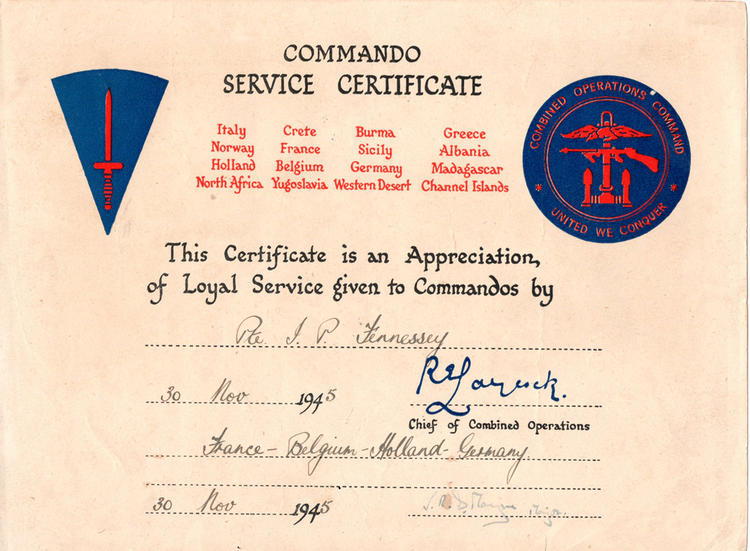 COMMANDO
SERVICE CERTIFICATE
Italy Crete Burma Greece
Norway France Sicily Albania
Holland Belgium Germany Madagascar
North Africa Yugoslavia Western Desert Channel Islands
COMBINED OPERATIONS COMMAND
* UNITED WE CONQUER *
This Certificate is an Appreciation,
of Loyal Service given to Commandos by
Pte. I. P. Fennessey
R E Laycock.
30 Nov 1945
Chief of Combined Operations
France - Belgium - Holland - Germany.
30 Nov 1945